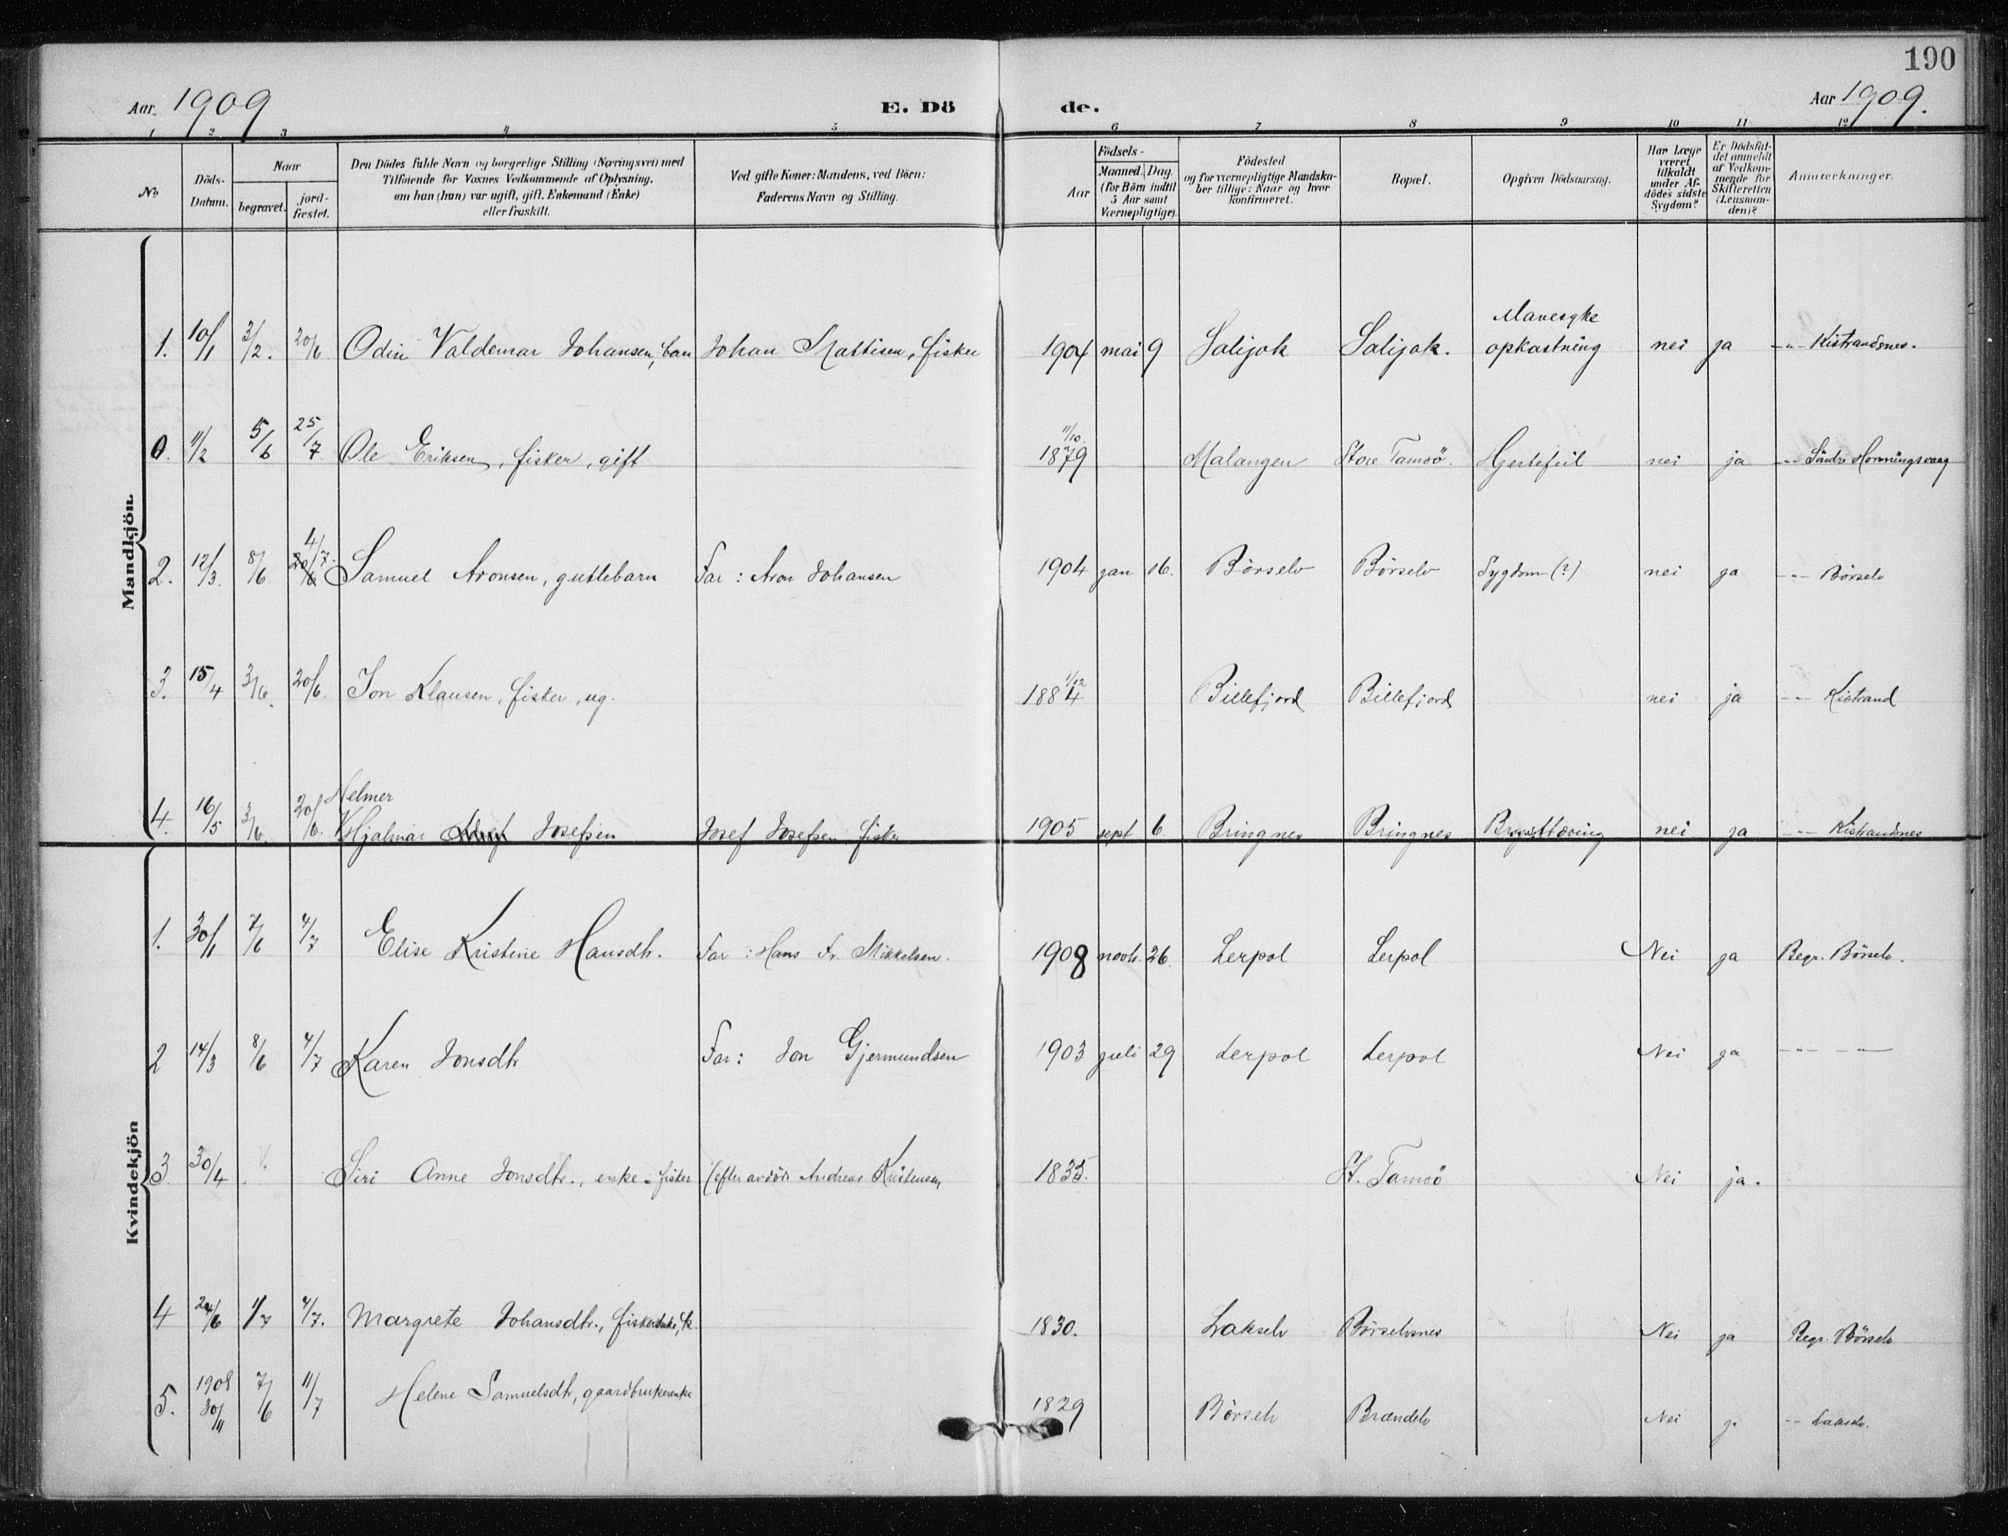 190
Aar. 1909
E. Dö de.
Aar 1909.
1 2 3 4 5 6 7 8 9 10 11 12
No.
Döds-Datum.
Naar
begravet.
jord-fæstet.
Den Dödes fulde Navn og borgerlige Stilling (Næringsvei) med
Tilföiende for Voxnes Vedkommende af Oplysning,
om han (hun) var ugift, gift, Enkemand (Enke)
eller fraskilt.
Ved gifte Koner: Mandens, ved Börn:
Faderens Navn og Stilling.
Födsels-
Aar
Maaned. Dag.
(for Börn indtil
5 Aar samt
Værnepligtige).
Födested
og for værnepligtige Mandska-
ber tillige: Naar og hvor
konfirmeret.
Bopæl.
Opgiven Dödsaarsag.
Har Læge
været
tilkaldt
under Af-
dödes sidste
Sygdom?
Er Dödsfal-
det anmeldt
af Vedkom-
mende for
Skifteretten
(Lensman-
den)?
Anmærkninger.
Mandkjön.
1. 10/1 3/2. 20/6 Odin Valdemar Johansen, barn Johan Mattisen, fisker 1904 mai 9 Salijok Salijok. Mavesyke opkastning nei ja -"- Kistrandsnes.
0. 11/2 5/6 25/7 Ole Eriksen, fisker, gift 11/10 1879 Malangen Store Tamsö. Hjertefeil nei ja -"- Söndre Honningsvaag
2. 12/3. 8/6 4/7. 20/6 Samuel Aronsen, guttebarn Far: Aron Johansen 1904 jan 16. Börselv Börselv Sygdom (?) nei ja -"- Börselv
3. 15/4 3/6. 20/6. Jon Klausen, fisker, ug. 1/12 1884 Billefjord Billefjord nei ja -"- Kistrand
4. 16/5 3/6. 20/6. Helmer Hjalmar Josefsen Josef Josefsen fisker 1905 sept 6. Bringnes Bringnes nei ja -"- Kistrandsnes
Kvindekjön
1. 30/1 7/6 4/7 Elise Kristine Hansdtr. Far: Hans Fr. Mikkelsen. 1908 novbr. 26. Lerpol Lerpol Nei ja Begr. Börselv.
2 14/3 8/6 4/7 Karen Jonsdtr Far: Jon Gjermundsen 1903 juli 29 Lerpol Lerpol Nei ja -"- -"-
3. 30/4 Siri Anne Jonsdtr., enke e. fisker (efter avdöde Andreas Kristensen 1835. St. Tamsö Nei ja.
4 24/6 1/7 4/7. Margrete Johansdtr., fiskerenke, k. 1830. Lakselv Börselvnes Nei ja Begr. Börselv
5. 1908 30/11 7/6 11/7 Helene Samuelsdtr, gaardbrukerenke 1829 Börselv Brændelv Nei ja -"- Lakselv.